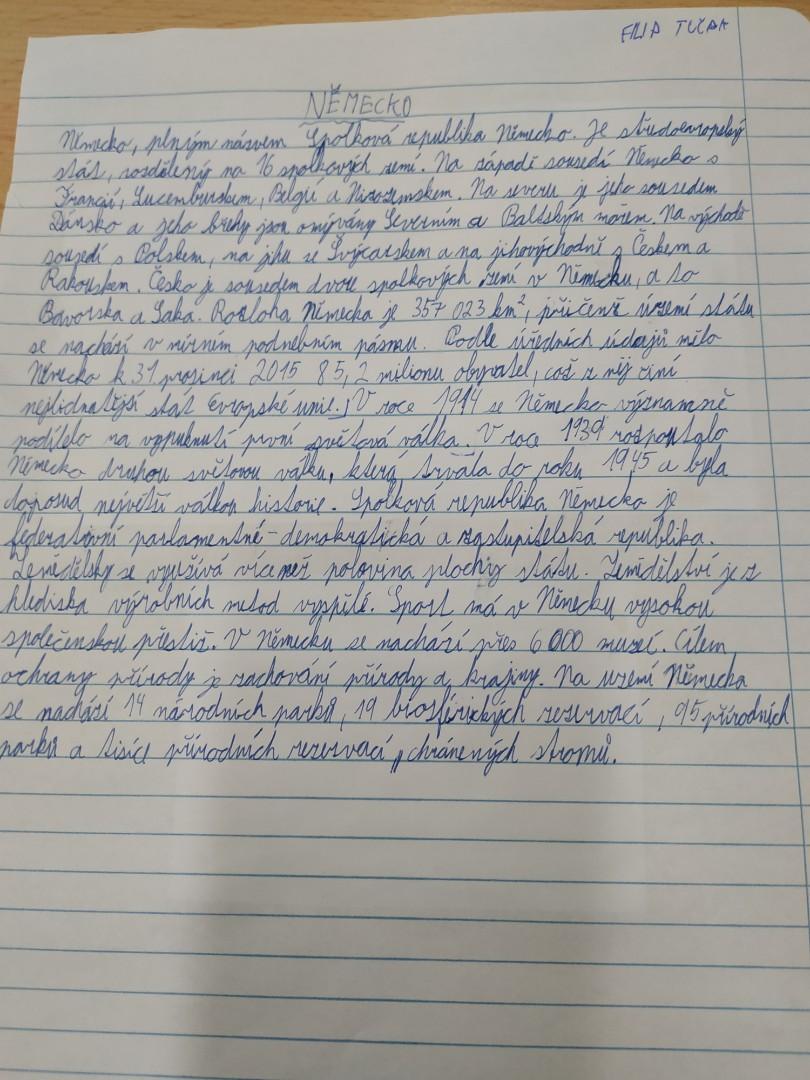 FILIP TUČAK
NĚMECKO
Německo, plným názvem Spolková republika Německo. Je středoevropský
stát, rozdělený na 16 spolkových zemí. Na západě sousedí Německo s
Francií, Lucemburskem, Belgií a Nizozemskem. Na severu je jeho sousedem
Dánsko a jeho břehy jsou omývány Severním a Baltským mořem. Na východě
sousedí s Polskem, na jihu se Švýcarskem a na jihovýchodně s Českem a
Rakouskem. Česko je sousedem dvou spolkových zemí v Německu, a to
Bavorska a Saka. Rozloha Německa je 357 023 km², přičemž území státu
se nachází v mírném podnebním pásmu. Podle úředních údajů mělo
Německo k 31 prosinci 2015 85,2 milionu obyvatel, což z něj činí
nejlidnatější stát Evropské unie. V roce 1914 se Německo významně
podílelo na vypuknutí první světová válka. V roce 1939 rozpoutalo
Německo druhou světovou válku, která trvala do roku 1945 a byla
doposud největší válkou historie. Spolková republika Německo je
federativní parlamentně-demokratická a zastupitelská republika.
Zemědělsky se využívá více než polovina plochy státu. Zemědělství je z
hlediska výrobních metod vyspělé. Sport má v Německu vysokou
společenskou přestiž. V Německu se nachází přes 6 000 muzeí. Cílem
ochrany přírody je zachování přírody a krajiny. Na uzemí Německa
se nachází 14 národních parků, 19 biosférických rezervací, 95 přírodních
parků a tisíce přírodních rezervací, chráněných stromů.